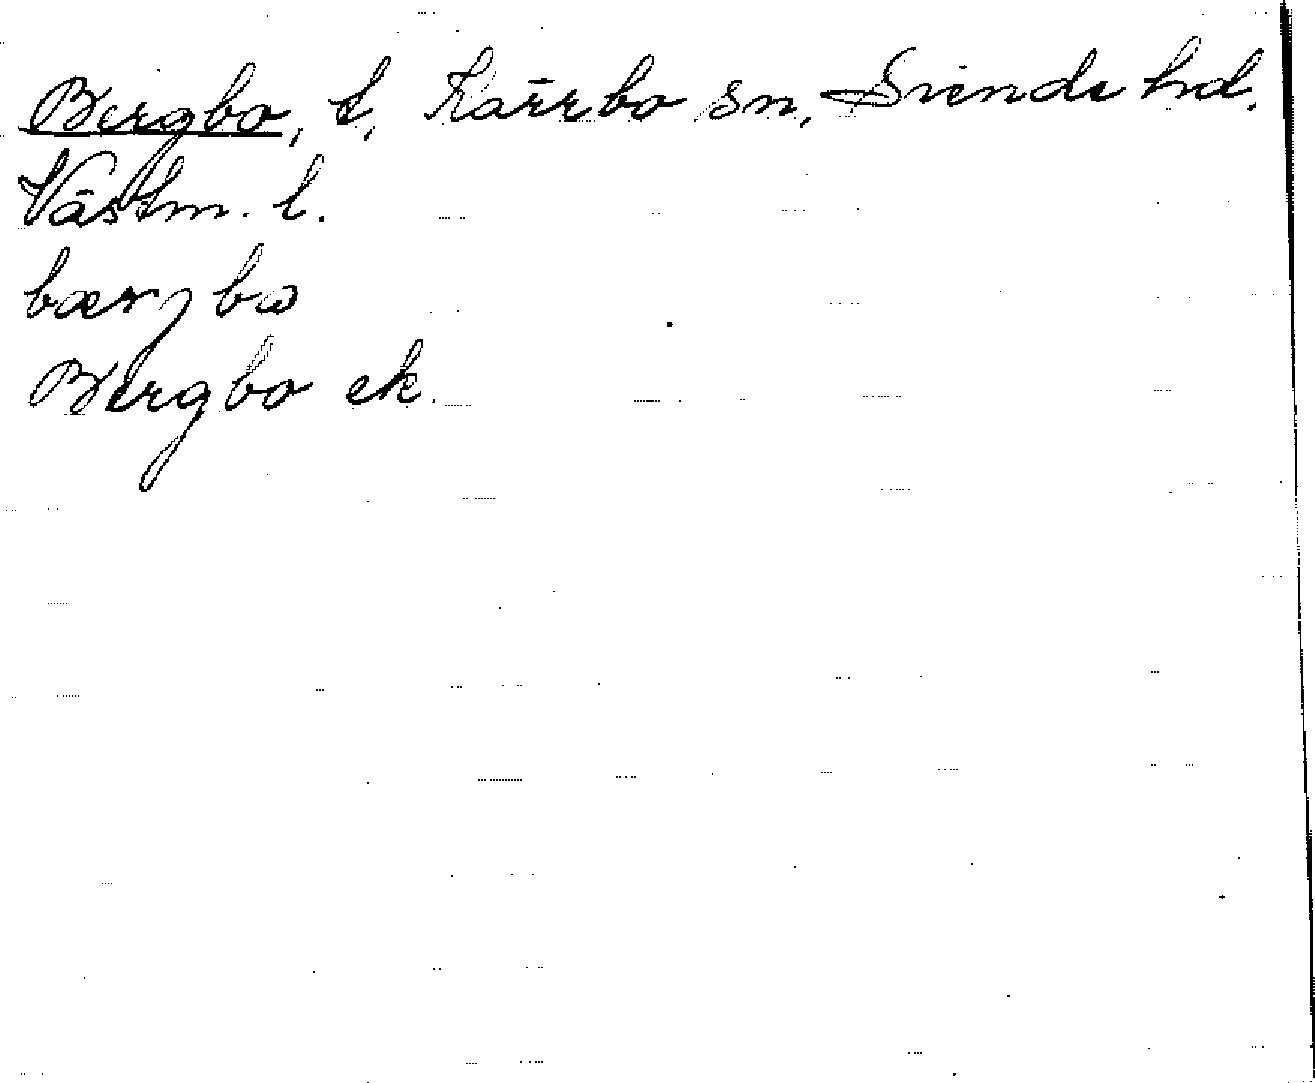 Bergbo, t, Kärrbo sn, Siende hd.
Västm. l.
bærjbo
Bergbo ek.